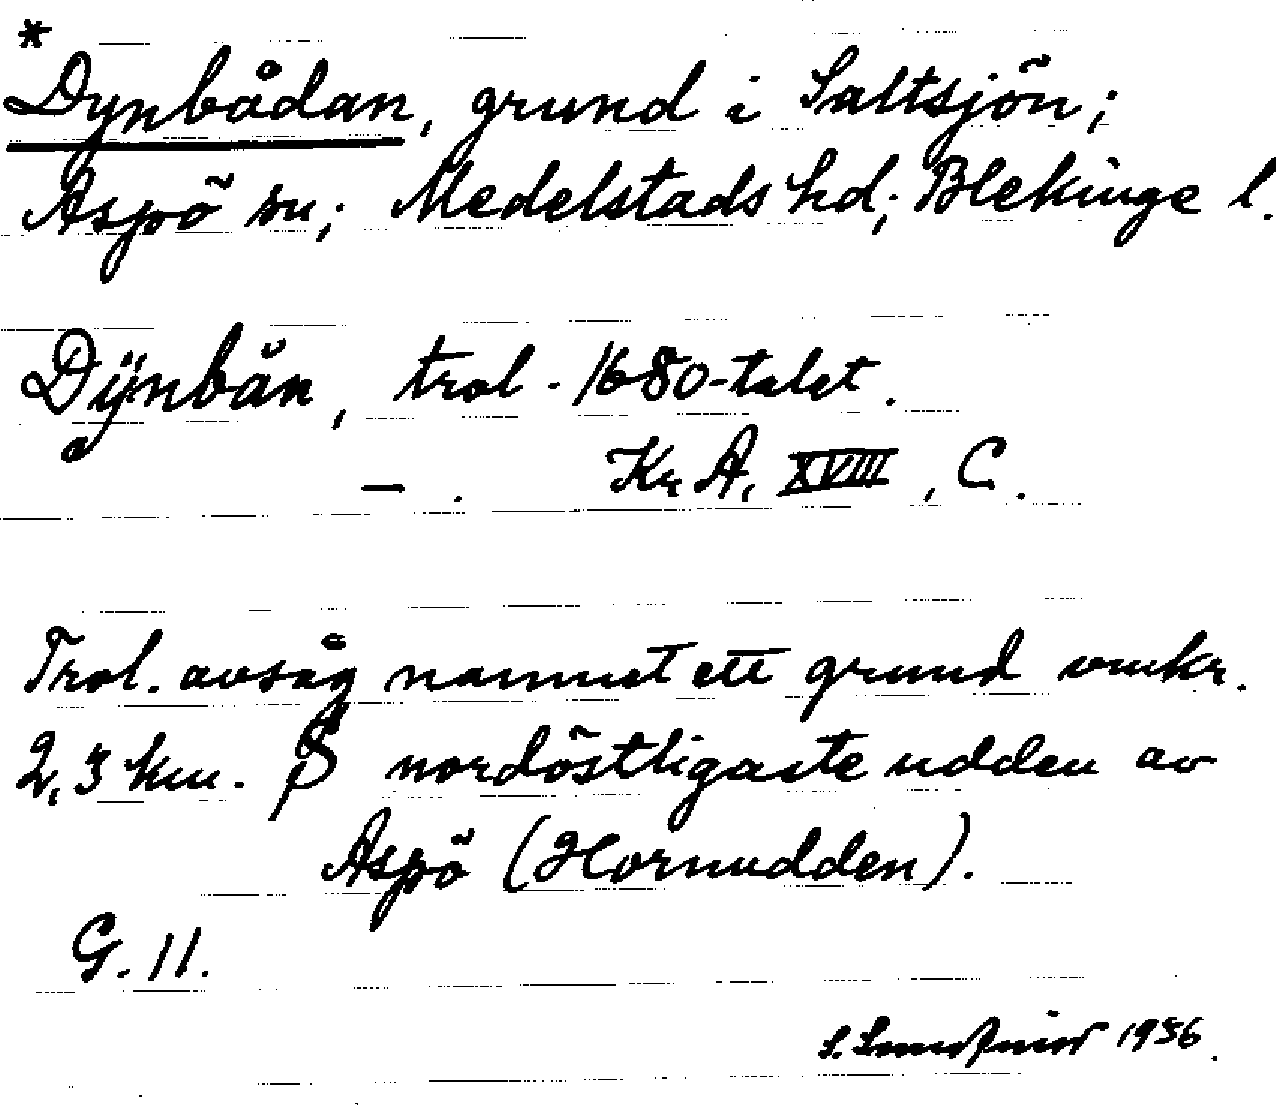 *
Dynbådan, grund i Saltsjön;
Aspö sn; Medelstads hd; Blekinge l.
Dÿnbån, trol. 1680-talet.
— . Kr. A. XVIII, C.
Trol. avsåg namnet ett grund omkr.
2,3 km. S nordöstligaste udden av
Aspö (Hornudden).
G. 11.
S. 1956.